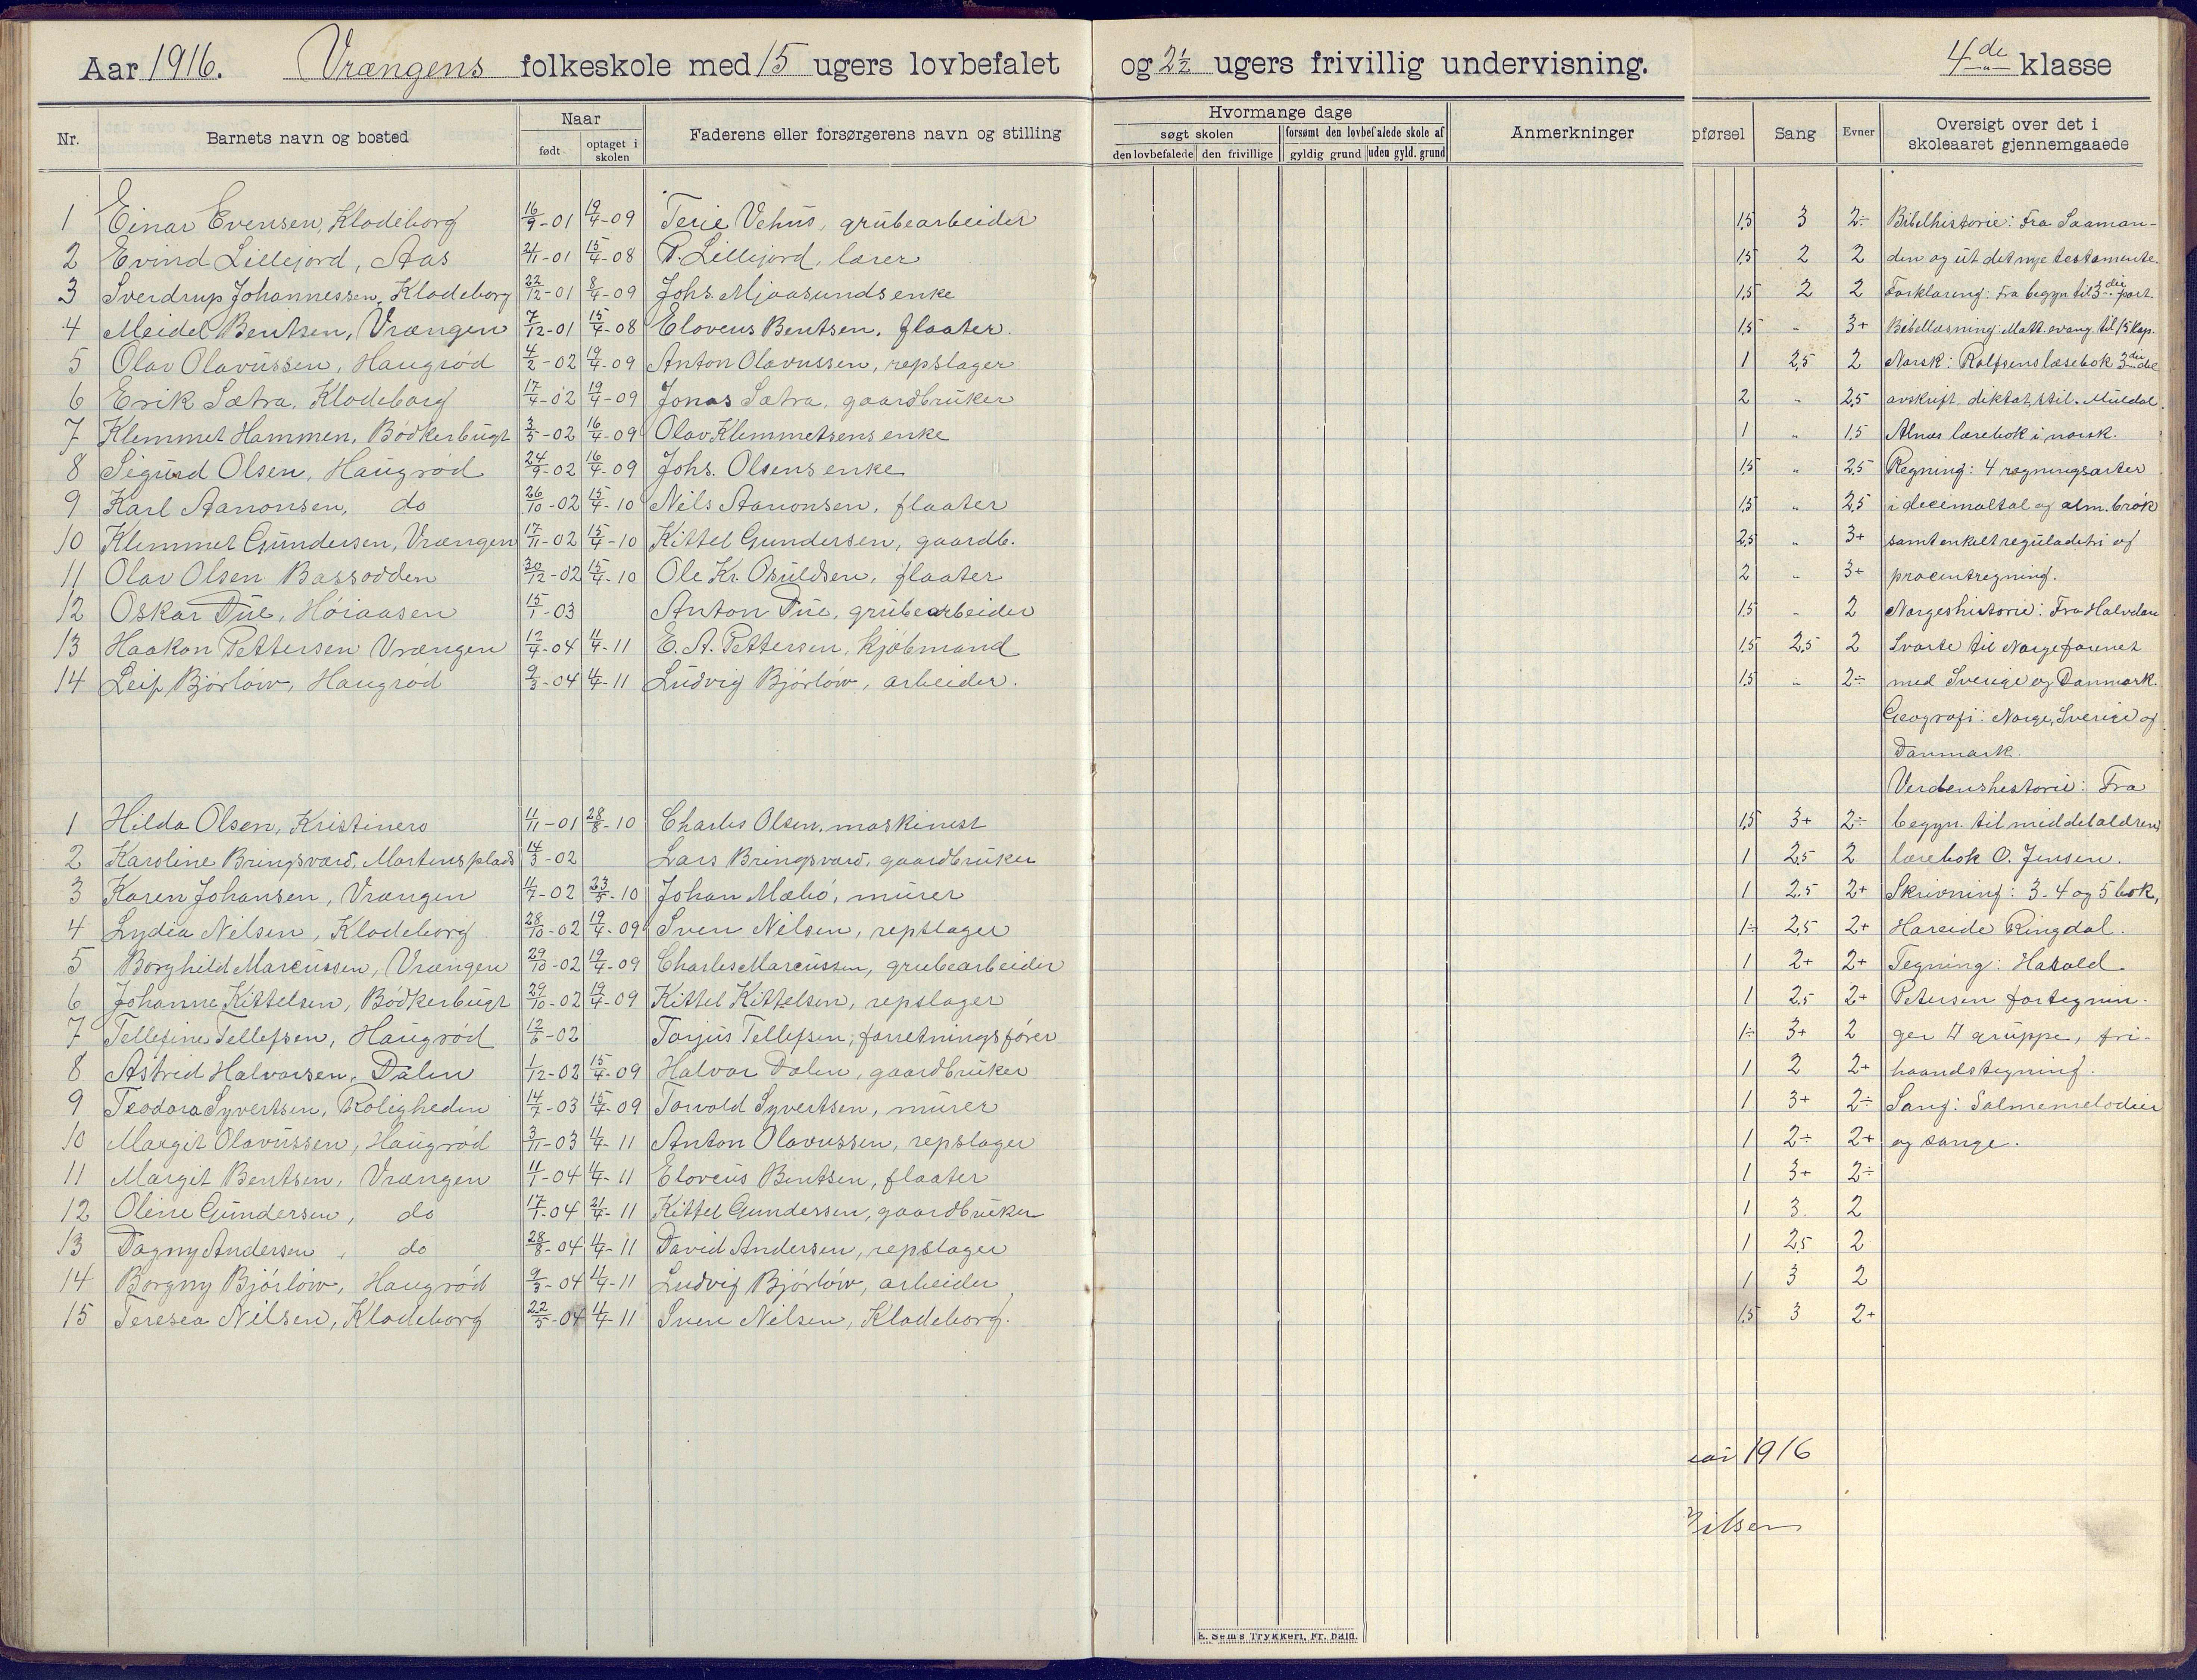 Aar 1916. Vrængens folkeskole med 15 ugers lovbefalet og 2½ ugers frivillig undervisning. 4de klasse
Nr. Barnets navn og bosted Naar født optaget i skolen Faderens eller forsørgerens navn og stilling
Hvormange dage søgt skolen den lovbefalede den frivillige forsømt den lovbefalede skole af gyldig grund uden gyld. grund Anmerkninger
pførsel Sang Evner Oversigt over det i skoleaaret gjennemgaaede
1 Einar Evensen, Klodeborg 16/9-01 19/4-09 Terie Vehus, grubearbeider 1,5 3 2÷ Bibelhistorie: Fra Saaman-
2 Evind Lillejord, Aas 21/11-01 15/4-08 P. Lillejord, lærer 1,5 2 2 den og ut det nye testamente.
3 Sverdrup Johannessen, Klodeborg 22/12-01 8/4-09 Johs. Mjaasunds enke 1,5 2 2 Forklaring: Fra begyn til 3die part.
4 Meidel Bentsen, Vrængen 7/12-01 15/4-08 Eloveus Bentsen, flaater. 1,5 „ 3+ Bibellæsning: Matt. evang. til 15 kap.
5 Olav Olavussen, Haugrød 4/2-02 19/4-09 Anton Olavussen, repslager 1 2,5 2 Norsk: Rolfsens læsebok 3die del
6 Erik Sætra, Klodeborg 17/4-02 19/4-09 Jonas Sætra, gaardbruker 2 „ 2,5 avskrift, diktat, stil. Müldal
7 Klemmet Hammen, Bødkerbugt 3/5-02 16/4-09 Olav Klemmetsens enke 1 „ 1,5 Alnæs lærebok i norsk.
8 Sigurd Olsen, Haugrød 24/9-02 16/4-09 Johs. Olsens enke 1,5 „ 2,5 Regning: 4 regningsarter
9 Karl Aanonsen, do 26/10-02 15/4-10 Nils Aanonsen, flaater 1,5 „ 2,5 i decimaltal og alm. brøk
10 Klemmet Gundersen, Vrængen 17/11-02 15/4-10 Kittel Gundersen, gaardb. 2,5 „ 3+ samt enkelt reguladetri og
11 Olav Olsen Bassodden 30/12-02 15/4-10 Ole Kr. Osuldsen, flaater 2 „ 3+ procentregning.
12 Oskar Due, Høiaasen 15/1-03 Anton Due, grubearbeider 1,5 „ 2 Norgeshistorie: Fra Halvdan
13 Haakon Pettersen Vrængen 12/4-04 4/4-11 E. A. Pettersen, kjøbmand 1,5 2,5 2 Svarte til Norge forenet
14 Leif Bjørløw, Haugrød 9/3-04 4/4-11 Ludvig Bjørløw, arbeider. 1,5 „ 2÷ med Sverige og Danmark.
Geografi: Norge, Sverige og
Danmark.
Verdenshistorie: Fra
1 Hilda Olsen, Kristinero 11/11-01 28/8-10 Charles Olsen, maskinist 1,5 3+ 2÷ begyn. til middelaldren,
2 Karoline Bringsværd, Mortensplads 14/3-02 Lars Bringsværd, gaardbruker 1 2,5 2 lærebok O. Jensen.
3 Karen Johansen, Vrængen 11/7-02 23/5-10 Johan Mæbø, murer 1 2.5 2+ Skrivning: 3-4 og 5 bok,
4 Lydia Nilsen, Klodeborg 28/10-02 19/4-09 Sven Nilsen, repslager 1÷ 2,5 2+ Hareide Ringdal.
5 Borghild Marcussen, Vrængen 29/10-02 19/4-09 Charles Marcussen, grubearbeider 1 2+ 2+ Tegning: Harald
6 Johanne Kittelsen, Bødkerbugt 29/10-02 19/4-09 Kittel Kittelsen, repslager 1 2,5 2+ Petersen fortegnin-
7 Tellefine Tellefsen, Haugrød 12/6-02 Torjus Tellefsen, forretningsfører 1÷ 3+ 2 ger gruppe, fri-
8 Astrid Halvorsen, Dalen 1/12-02 15/4-09 Halvor Dalen, gaardbruker 1 2 2+ haandstegning.
9 Teodora Syvertsen, Roligheden 14/7-03 15/4-09 Torvald Syvertsen, murer 1 3+ 2÷ Sang: Salmemelodier
10 Margit Olavussen, Haugrød 3/11-03 4/4-11 Anton Olavussen, repslager 1 2÷ 2+ og sange.
11 Margit Bentsen, Vrængen 11/1-04 4/4-11 Eloveus Bentsen, flaater 1 3+ 2÷
12 Oline Gundersen, do 17/1-04 21/4-11 Kittel Gundersen, gaardbruker 1 3 2
13 Dagny Andersen, do 28/8-04 4/4-11 David Andersen, repslager 1 2,5 2
14 Borgny Bjørløw, Haugrød 9/3-04 4/4-11 Ludvig Bjørløw, arbeider 1 3 2
15 Teresea Nilsen, Klodeborg 22/5-04 4/4-11 Sven Nilsen, Klodeborg. 1,5 3 2+
1916
E. Sem's Trykkeri, Fr. hald.